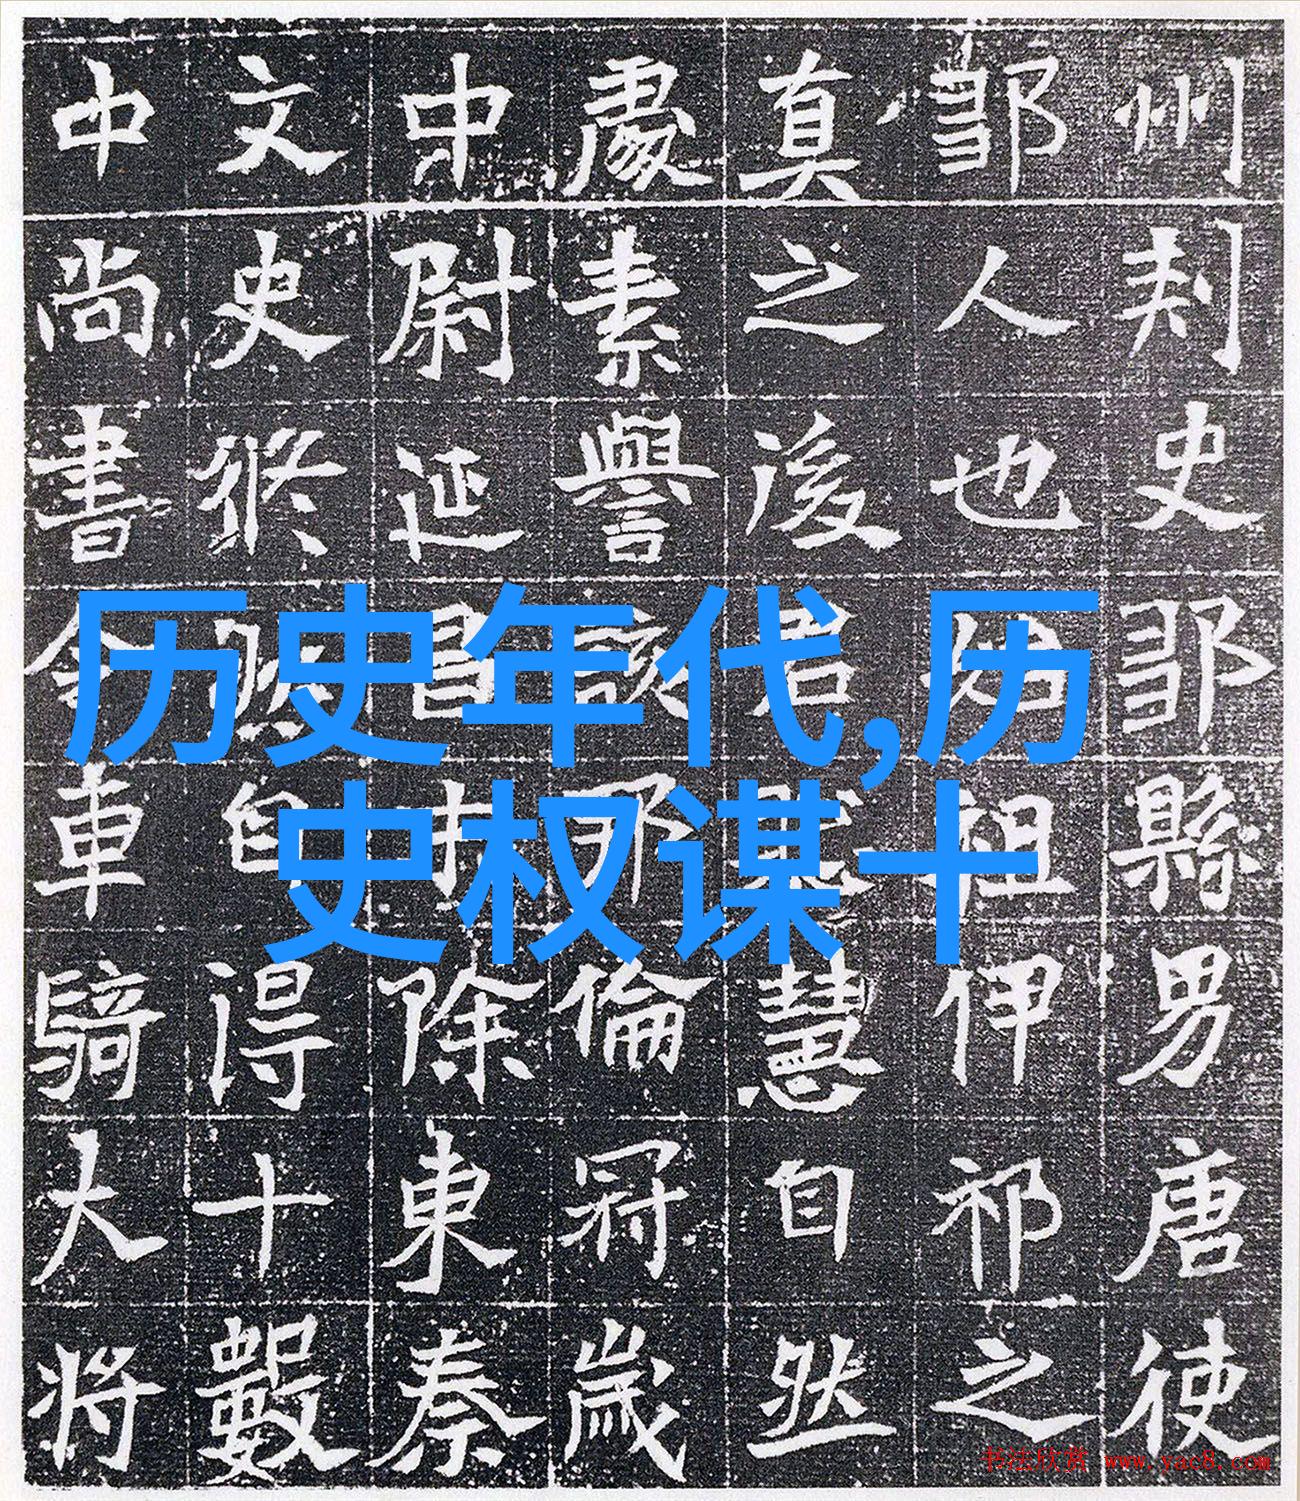 州刾史鄒縣男唐使
鄒人也始祖伊祁之
真之後君慧自然
處素譽該倫冠歲
中尉延昌除東秦
文史自得十數
中尚書令車騎大將
历史年代,历
史权谋十
书法欣赏 www.yac8.com